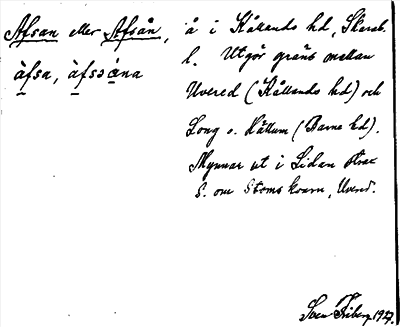 Afsan eller Afsån, å i Kållands hd, Skarab.
l. Utgör gräns mellan
àfsa, àfsåna
Uvered (Kållands hd) och
Long o. Hällum (Barne hd).
Mynnar ut i Lidan strax
S. om Stoms kvarn, Uvered.
Sven Friberg 1927.